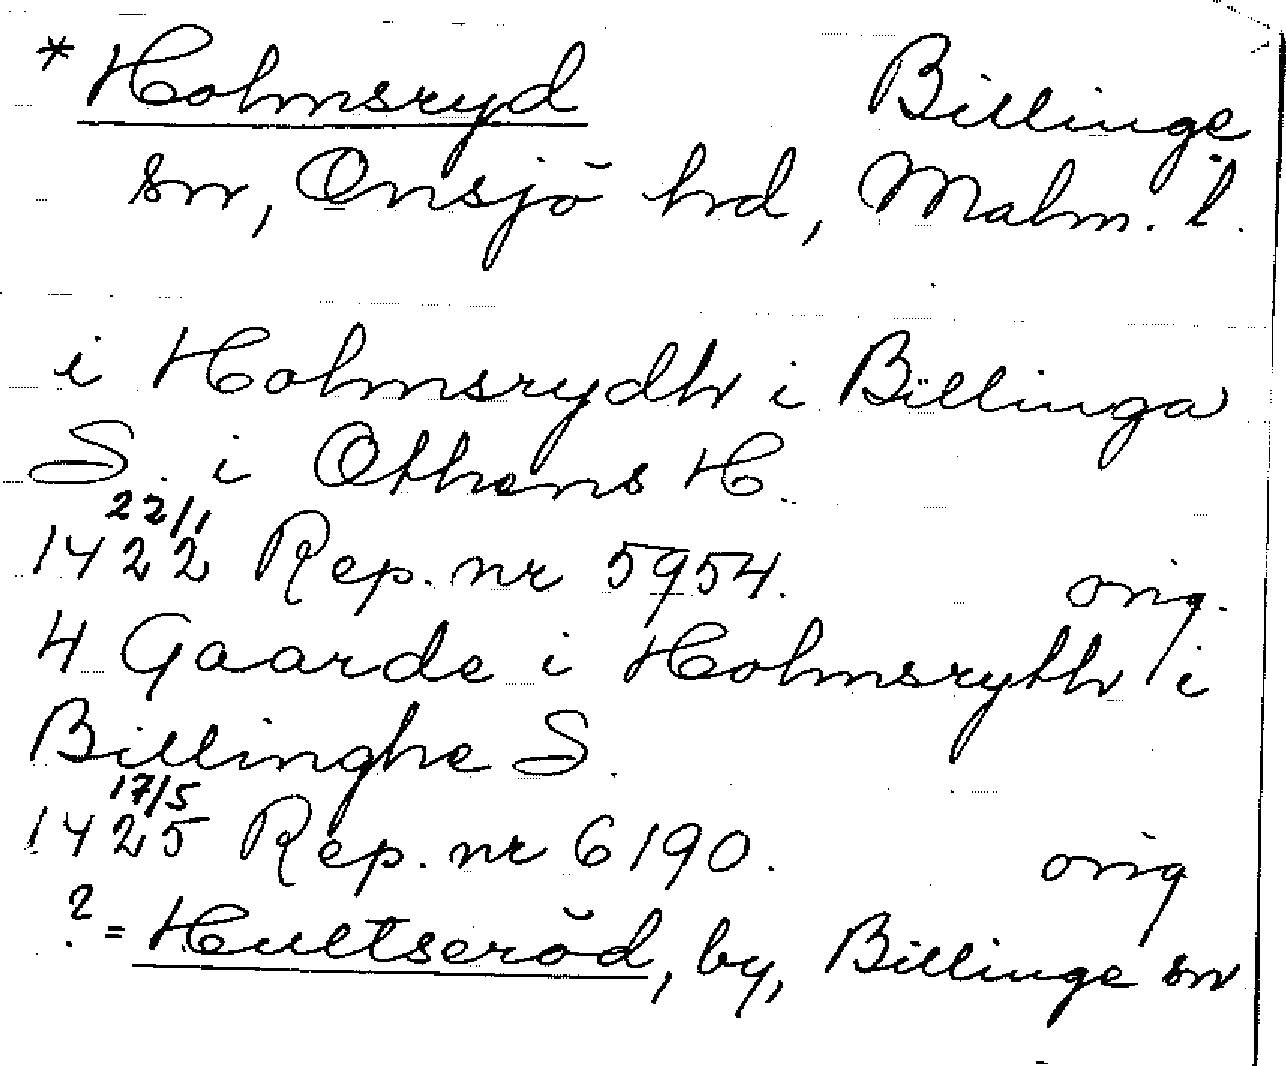 * Holmsryd Billinge
sn, Onsjö hd, Malm. l.
i Holmsrydh i Billinga
S. i Othens H.
22/1
1422 Rep. nr 5954. orig.
4 Gaarde i Holmsryth i
Billinghe S.
17/5
1425 Rep. nr 6190. orig
? = Hultseröd, by, Billinge sn